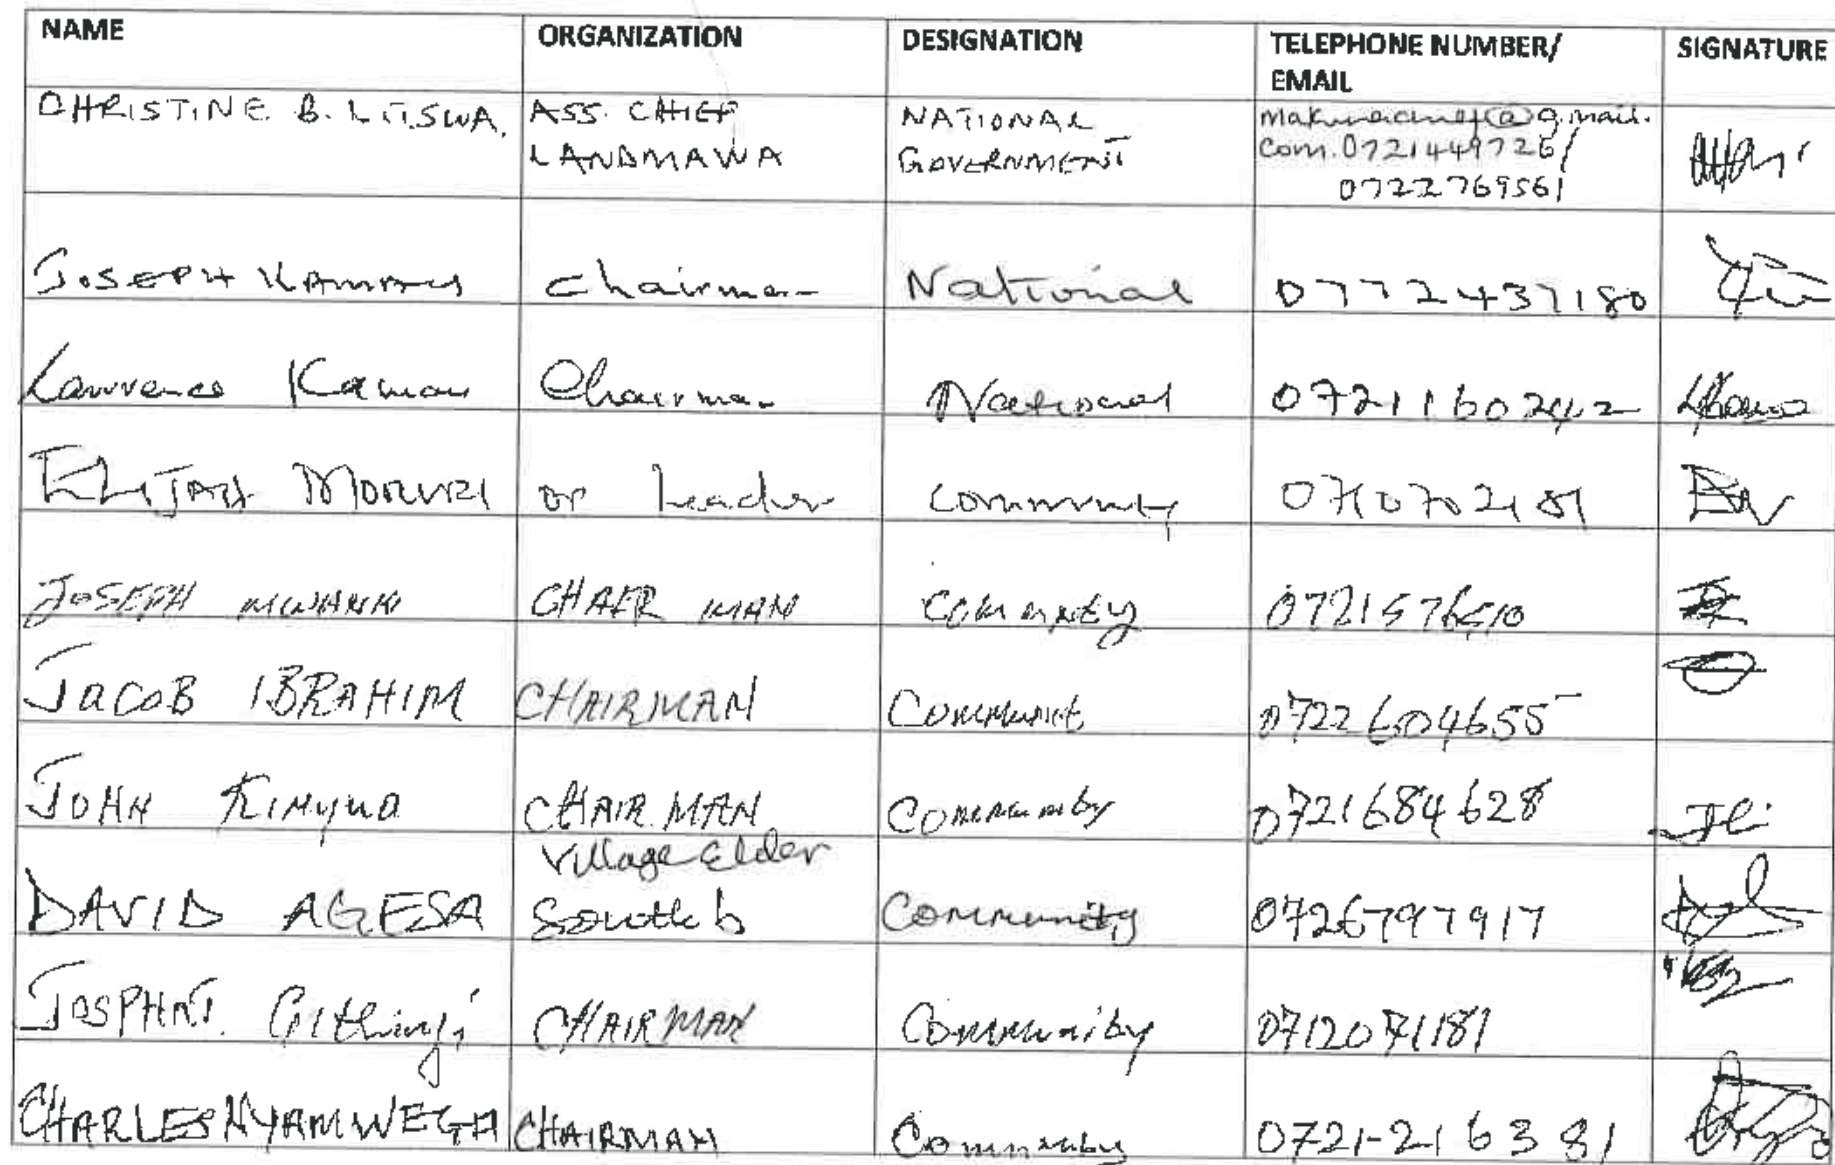 NAME ORGANIZATION DESIGNATION TELEPHONE NUMBER/ EMAIL SIGNATURE
CHRISTINE B. LITSWA. ASS. CHIEF LANDMAWA NATIONAL GOVERNMENT @gmail.com. 0721449726/ 0722769561
JOSEPH KAMAU Chairman National 07772437180
Lawrence Kamau Chairman National
ELIJAH MORURI or leader community 0710702181
JOSEPH CHAIR MAN
JACOB IBRAHIM CHAIRMAN Communit 0722604655
JOHN KINYUA CHAIR MAN Community 0721684628
DAVID AGESA Village Elder South b Community 0726797917
JOSPHAT. Githinji CHAIRMAN Community 0712071181
CHARLES NYAMWEGA CHAIRMAN Community 0721-216381